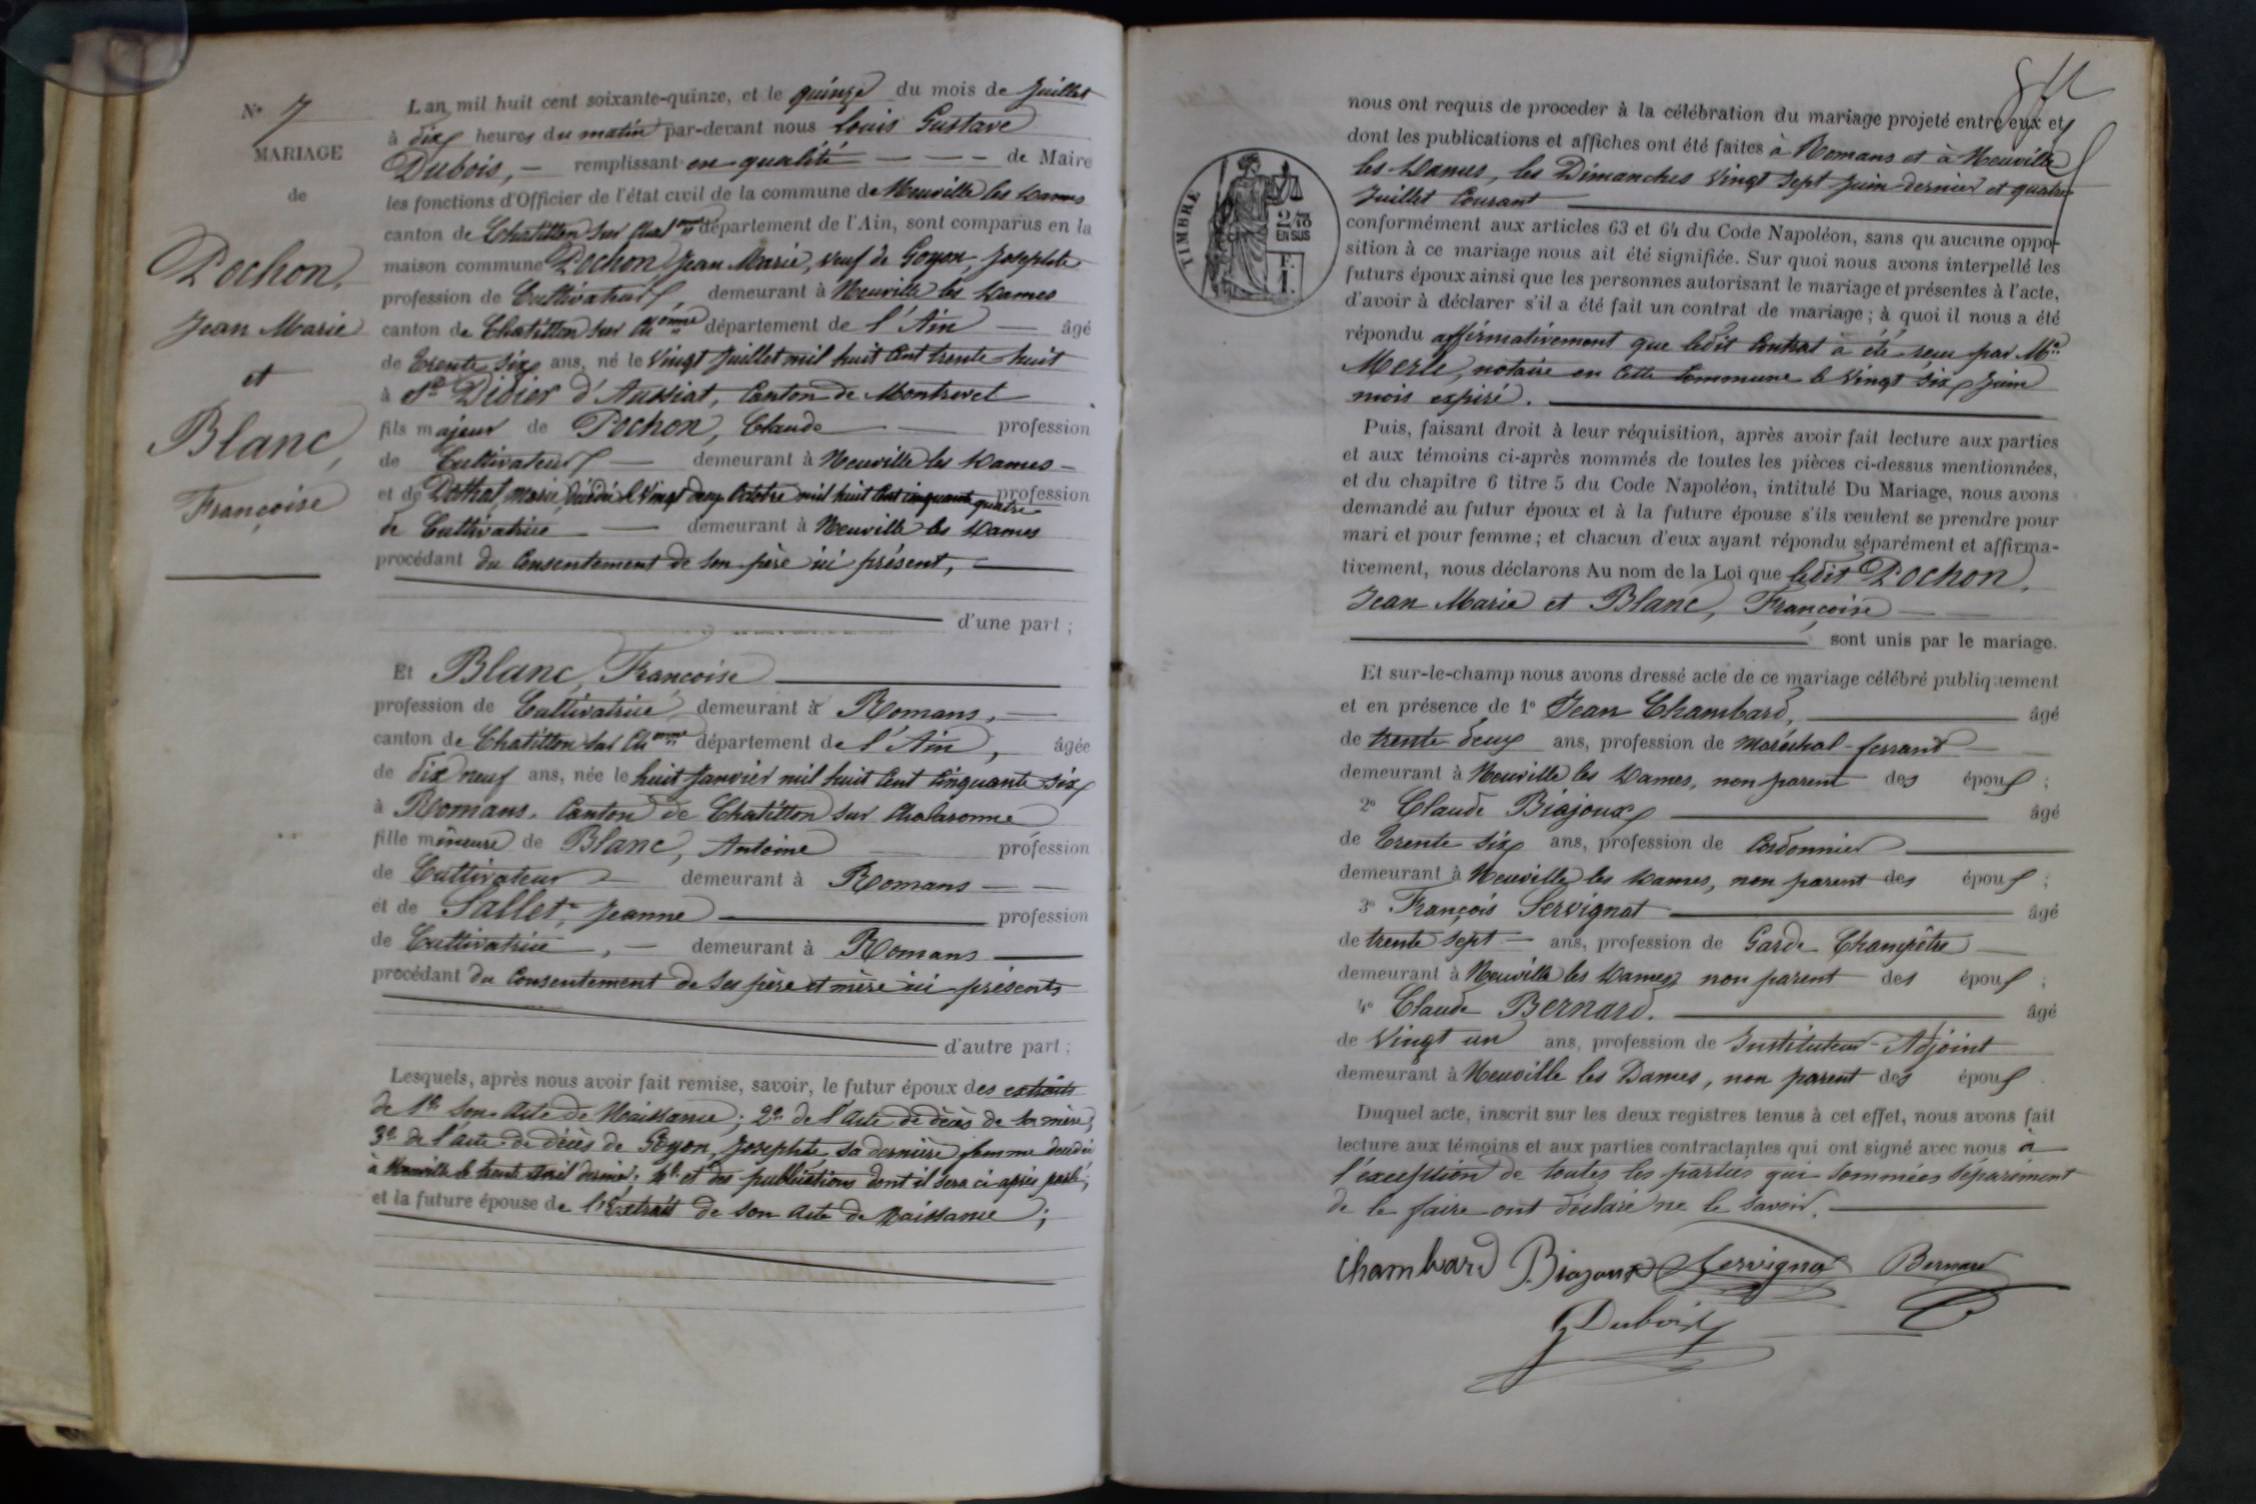 N° 7
MARIAGE
de
Pochon,
Jean Marie
et
Blanc,
Françoise
L'an mil huit cent soixante-quinze, et le quinze du mois de Juillet
à dix heures du matin par-devant nous Louis Gustave
Dubois, — remplissant en qualité — — — de Maire
les fonctions d'Officier de l'état civil de la commune de Neuville les Dames
canton de Chatillon sur Chal.onne département de l'Ain, sont comparus en la
maison commune Pochon, Jean Marie, veuf de Goyon, Josephte
profession de Cultivateur, demeurant à Neuville les Dames
canton de Chatillon sur Ch.onne département de l'Ain — âgé
de trente six ans, né le vingt Juillet mil huit cent trente-huit
à St Didier d'Aussiat, Canton de Montrevel
fils majeur de Pochon, Claude — profession
de Cultivateur — demeurant à Neuville les Dames —
et de Marie, décédée le vingt deux Octobre mil huit cent cinquante quatre profession
de Cultivatrice — demeurant à Neuville les Dames
procédant du consentement de son père ici présent, —
d'une part ;
Et Blanc, Françoise —
profession de Cultivatrice demeurant à Romans, —
canton de Chatillon sur Ch.onne département de l'Ain, âgée
de dix neuf ans, née le huit Janvier mil huit cent cinquante six
à Romans, Canton de Chatillon sur Chalaronne
fille mineure de Blanc, Antoine profession
de Cultivateur — demeurant à Romans — —
et de Sallet, Jeanne — profession
de Cultivatrice, — demeurant à Romans —
procédant du consentement de ses père et mère ici présents
d'autre part ;
Lesquels, après nous avoir fait remise, savoir, le futur époux des extraits
de 1° son Acte de Naissance ; 2° de l'Acte de décès de sa mère,
3° de l'acte de décès de Goyon, Josephte, sa dernière femme décédée
à Neuville le trente Avril dernier ; 4° et des publications dont il sera ci-après parlé ;
et la future épouse de l'Extrait de son Acte de Naissance ;
nous ont requis de proceder à la célébration du mariage projeté entre eux et
dont les publications et affiches ont été faites à Romans et à Neuville
les Dames, les Dimanches vingt sept Juin dernier et quatre
Juillet Courant —
TIMBRE
2/10
EN SUS
F.
1.
conformément aux articles 63 et 64 du Code Napoléon, sans qu'aucune oppo-
sition à ce mariage nous ait été signifiée. Sur quoi nous avons interpellé les
futurs époux ainsi que les personnes autorisant le mariage et présentes à l'acte,
d'avoir à déclarer s'il a été fait un contrat de mariage ; à quoi il nous a été
répondu affirmativement que ledit Contrat a été reçu par Me
Merle, notaire en cette Commune le vingt six Juin
mois expiré. —
Puis, faisant droit à leur réquisition, après avoir fait lecture aux parties
et aux témoins ci-après nommés de toutes les pièces ci-dessus mentionnées,
et du chapitre 6 titre 5 du Code Napoléon, intitulé Du Mariage, nous avons
demandé au futur époux et à la future épouse s'ils veulent se prendre pour
mari et pour femme ; et chacun d'eux ayant répondu séparément et affirma-
tivement, nous déclarons Au nom de la Loi que ledit Pochon,
Jean Marie et Blanc, Françoise —
sont unis par le mariage.
Et sur-le-champ nous avons dressé acte de ce mariage célébré publiquement
et en présence de 1° Jean Chambard, — âgé
de trente deux ans, profession de Maréchal-ferrant —
demeurant à Neuville les Dames, non parent des époux ;
2° Claude Biajoux — âgé
de trente six ans, profession de Cordonnier —
demeurant à Neuville les Dames, non parent des époux ;
3° François Servignat — âgé
de trente sept — ans, profession de Garde Champêtre —
demeurant à Neuville les Dames non parent des époux ;
4° Claude Bernard. — âgé
de vingt un ans, profession de Instituteur-Adjoint
demeurant à Neuville les Dames, non parent des époux
Duquel acte, inscrit sur les deux registres tenus à cet effet, nous avons fait
lecture aux témoins et aux parties contractantes qui ont signé avec nous à
l'exception de toutes les parties qui sommées séparément
de le faire ont déclaré ne le savoir. —
Chambard Biajoux Servignat Bernard
G Dubois